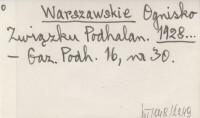 Warszawskie Ognisko
Związku Podhalan. 1928...
– Gaz. Podh. 16, no 30.